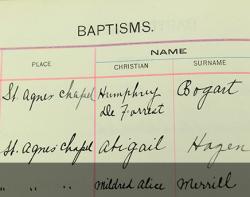 BAPTISMS.
NAME
PLACE CHRISTIAN SURNAME
St. Agnes Chapel Humphrey Bogart
De Forrest
St. Agnes Chapel Abigail Hazen
" " " Mildred Alice Merrill